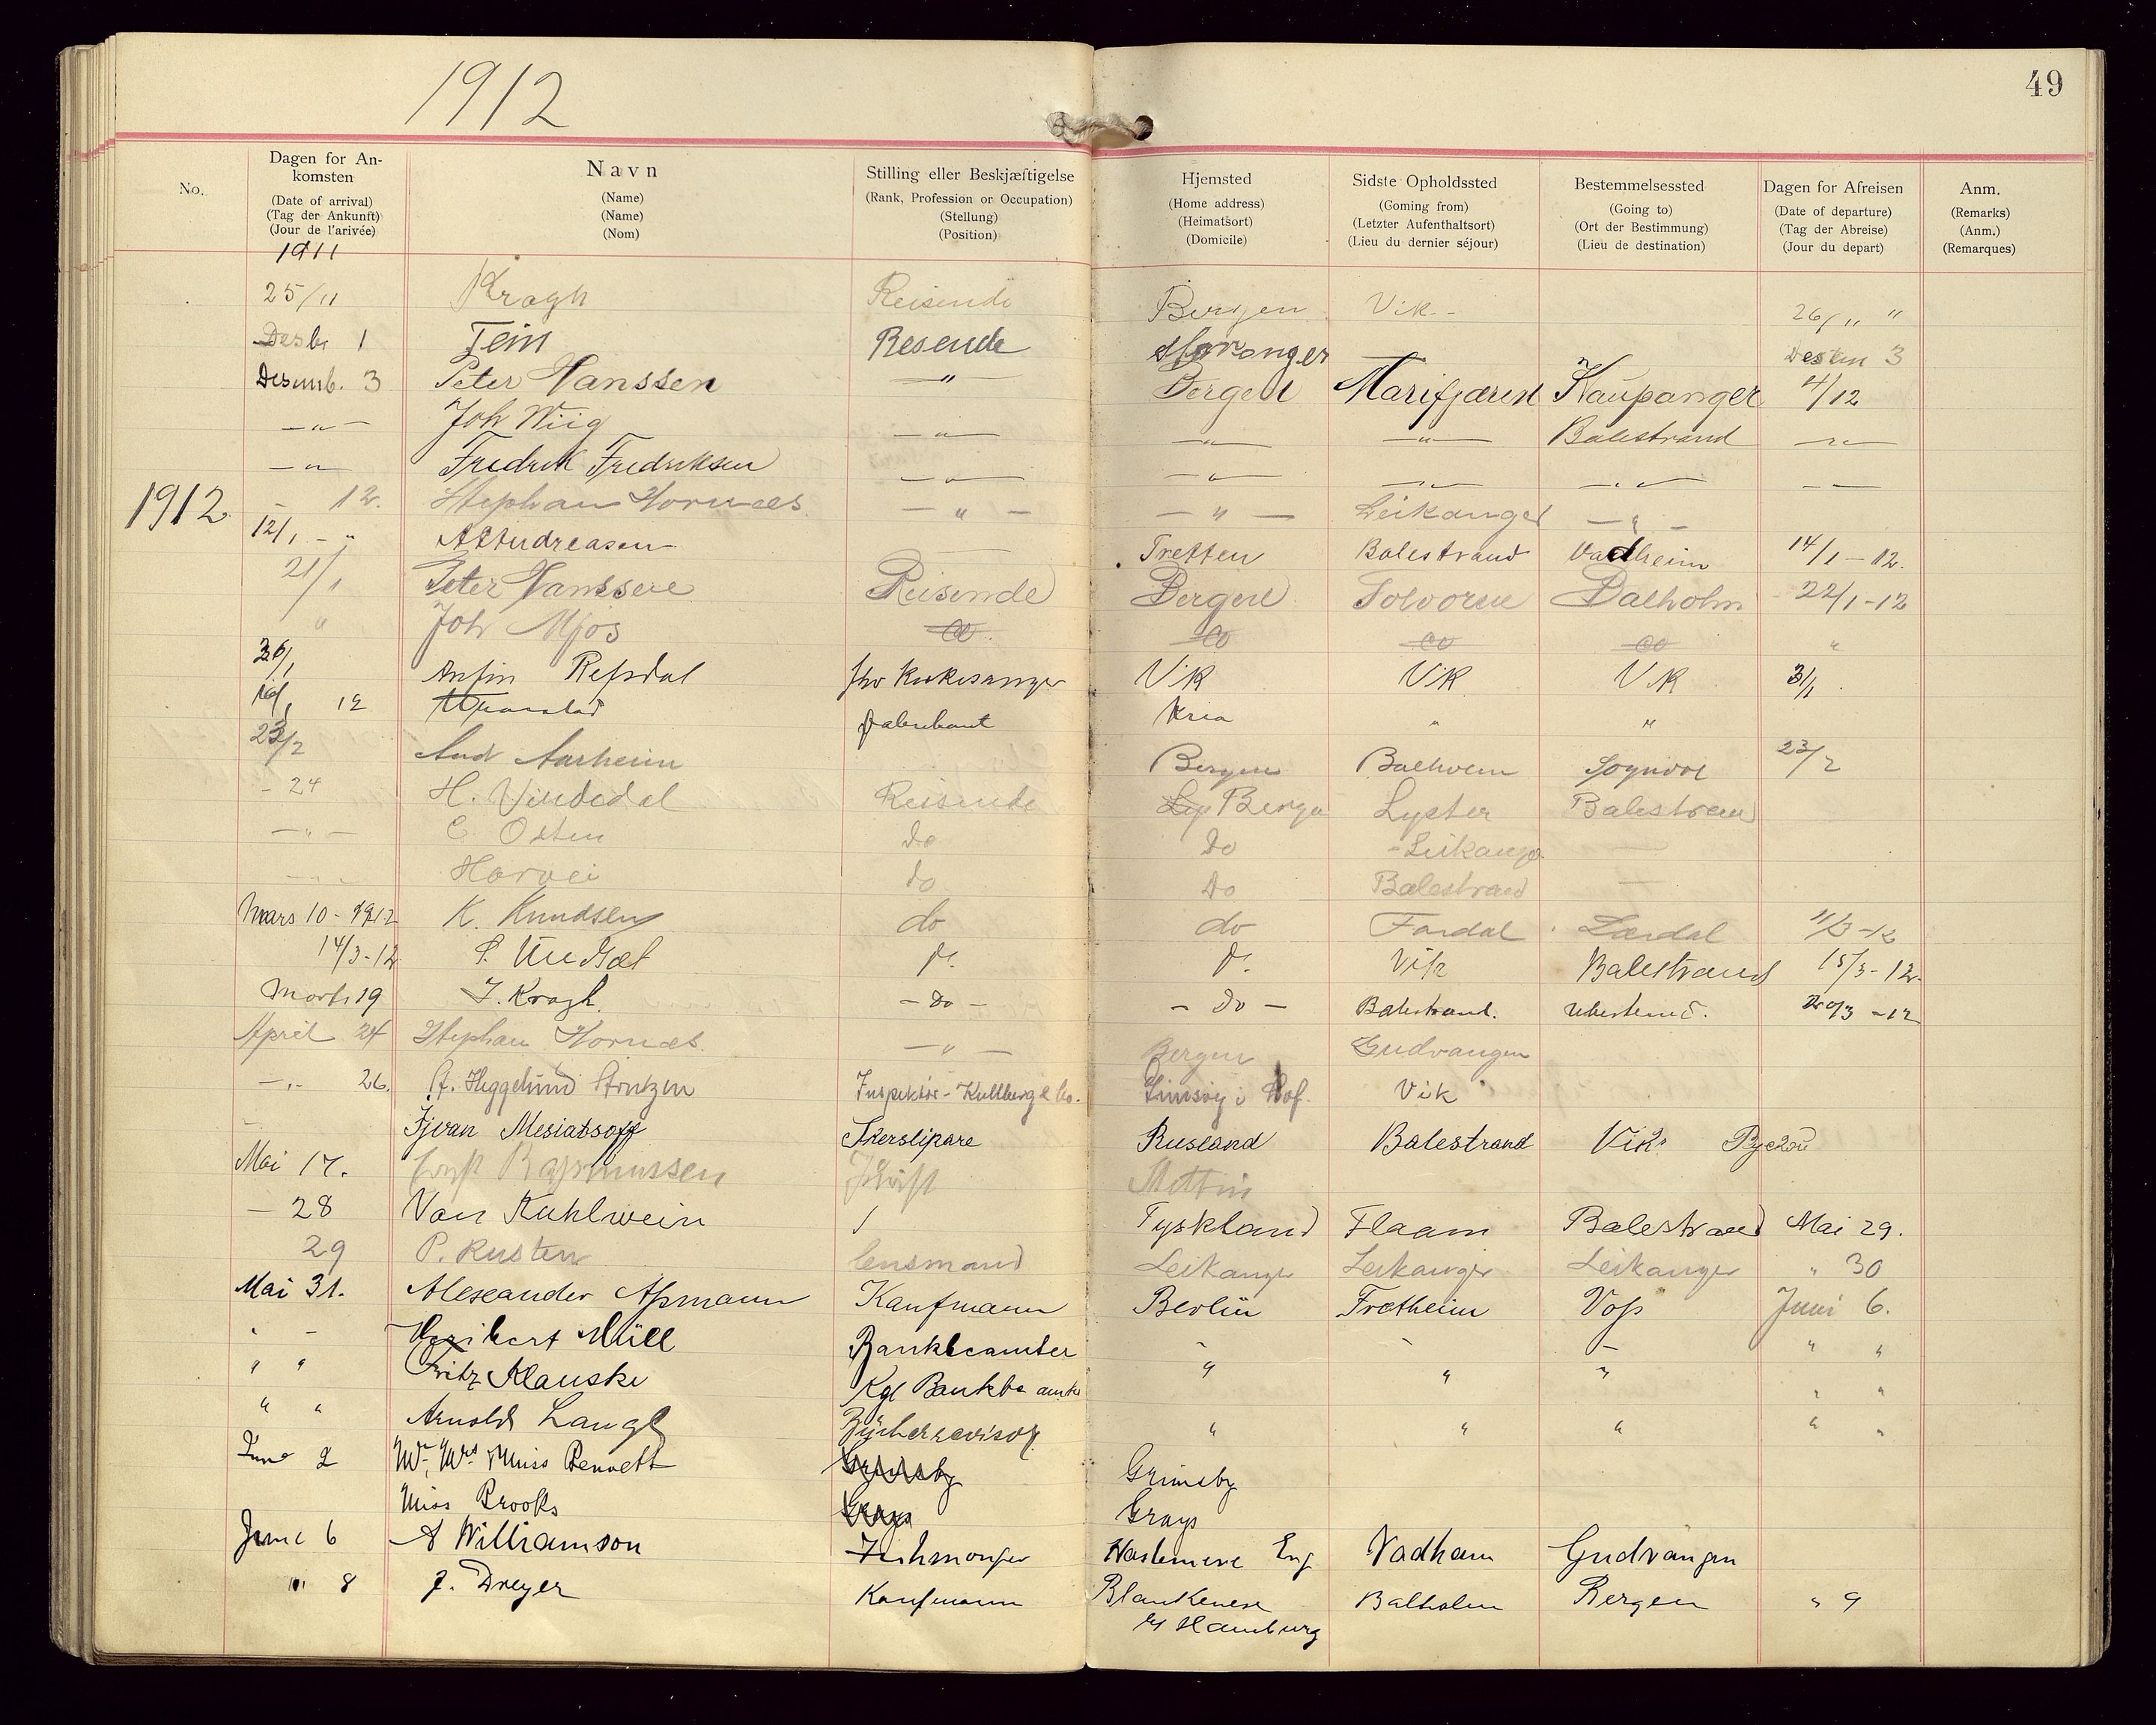 1912
49
No.
Dagen for Ankomsten (Date of arrival) (Tag der Ankunft) (Jour de l'arivée)
Navn (Name) (Name) (Nom)
Stilling eller Beskjæftigelse (Rank, Profession or Occupation) (Stellung) (Position)
Hjemsted (Home address) (Heimatsort) (Domicile)
Sidste Opholdssted (Coming from) (Letzter Aufenthaltsort) (Lieu du dernier séjour)
Bestemmelsessted (Going to) (Ort der Bestimmung) (Lieu de destination)
Dagen for Afreisen (Date of departure) (Tag der Abreise) (Jour du depart)
Anm. (Remarks) (Anm.) (Remarques)
1911
25/11 Kragh Reisende Bergen Vik 26/11 "
Desbr 1 Tein Resende 3
Desemb. 3 Peter Hanssen — " — Bergen Marifjæren Kaupanger 4/12
— " — Joh Wiig — " — — " — — " — Balestrand — " —
— " — Fredrik Fredriksen — " — — " — — " — — " — — —
1912 - 12. Stephan Hornæs — " — — " — Leikanger — " —
12/1 - " Andreasen — Tretten Balestrand Vadheim 14/1 - 12.
21/1 Peter Hanssen Reisende Bergen Solvorn Balholm 22/1-12
" Joh Mjøs do do do do "
Anfin Refsdal Vik Vik Vik 3/1
12 Fabrikant Kria " "
23/2 And Aarheim Bergen Balholm 23/2
- 24 H. Vindedal Reisende Bergen Lyster Balestrand
— " — C. Osten do Do Leikanger —
— " — Horvei do Do Balestrand —
Mars 10 - 1912 K. Knudsen do do Lærdal 11/3-12
14/3-12 Vik Balestrand 15/3-12.
Marts 19 J. Kragh. - Do - - Do - Balestrand. ubestemt. 20/3 -12
April 24 Stephan Hornæs. — " — Bergen Gudvangen
— " — 26. Heggelund Inspektør - Kullberg & Co. Vik
Mesiatsoff Skerslipare Rusland Balestrand Vik.
Mai 17. Rasmussen Stettin
— 28 Von Kuhlwein / Tyskland Flaam Balestrand Mai 29.
29 P. Rusten lensmand Leikanger Leikanger Leikanger " 30
Mai 31. Alexander Aßmann Kaufmann Berlin Fretheim Voß Juni 6.
" - Heribert Müll Bankbeamter - - - " "
" " Fritz Klauske Kgl Bankbeamter " " " " "
" " Arnold Bücherrevisor " " " " "
June 2 Mr, Mrs & Miss Bennett Grimsby Grimsby
Miss Brooks Grays Grays
June 6 A Williamson Fishmonger Haslemere Eng Vadham Gudvangen
" 8 J. Dreyer Kaufmann Blankenese Balholm Bergen " 9
b/ Hamburg